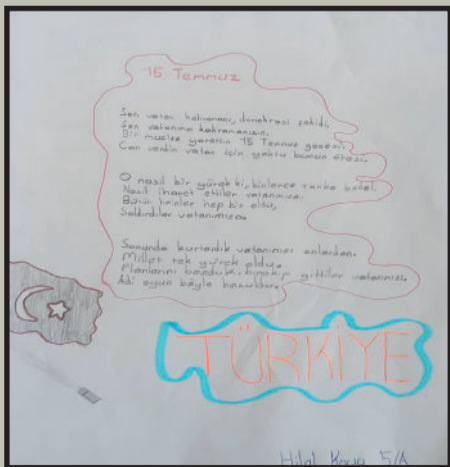 15 Temmuz
Sen vatan kahramanı, demokrasi şehidi,
Sen vatanımın kahramanısın.
Bir mucize yarattın 15 Temmuz gecesi,
Can verdin vatan için yoktu bunun ötesi.
O nasıl bir yürek ki, binlerce tanka bedel.
Nasıl ihanet ettiler vatanımıza.
Bütün hainler hep bir oldu,
Saldırdılar vatanımıza.
Sonunda kurtardık vatanımızı onlardan.
Millet tek yürek oldu.
Planlarını bozduk bırakıp gittiler vatanımızı.
Adi oyun böyle bozuldu.
TÜRKİYE
Hilal Kaya 5/A